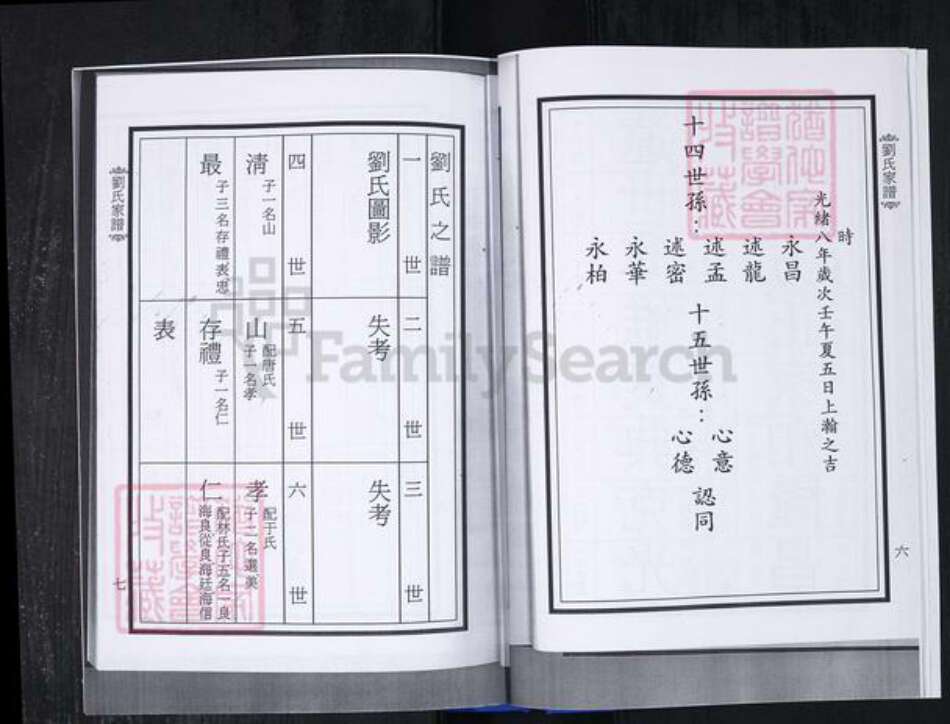 劉氏家譜
時
光緒八年歲次壬午夏五日上瀚之吉
十四世孫：
永昌
述龍
述孟
述密
永華
永柏
十五世孫：
心意
心德
認同
六
劉氏之譜
一世
劉氏圖影
二世
失考
三世
失考
四世
清
子一名山
最
子三名存禮表忠
五世
山
配唐氏
子一名孝
存禮
子一名仁
表
六世
孝
配于氏
子二名選美
仁
配林氏子五名一良
海良從良海廷海信
劉氏家譜
七
FamilySearch